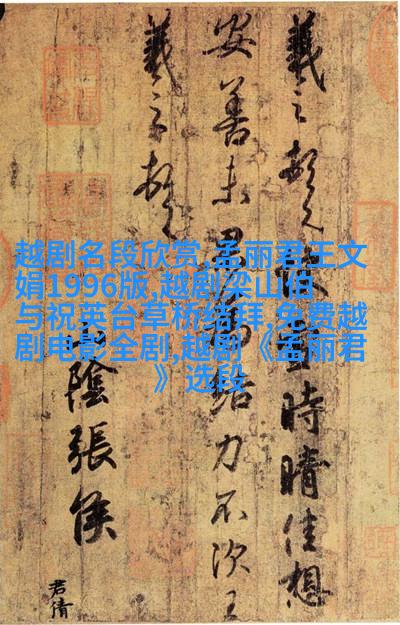 越剧名段欣赏,孟丽君王文
娟1996版,越剧梁山伯
与祝英台草桥结拜,免费越
剧电影全剧,越剧《孟丽君
》选段
羲之頓首快雪時晴佳想
安善未果為結力不次王
羲之頓首
山陰張侯
君倩